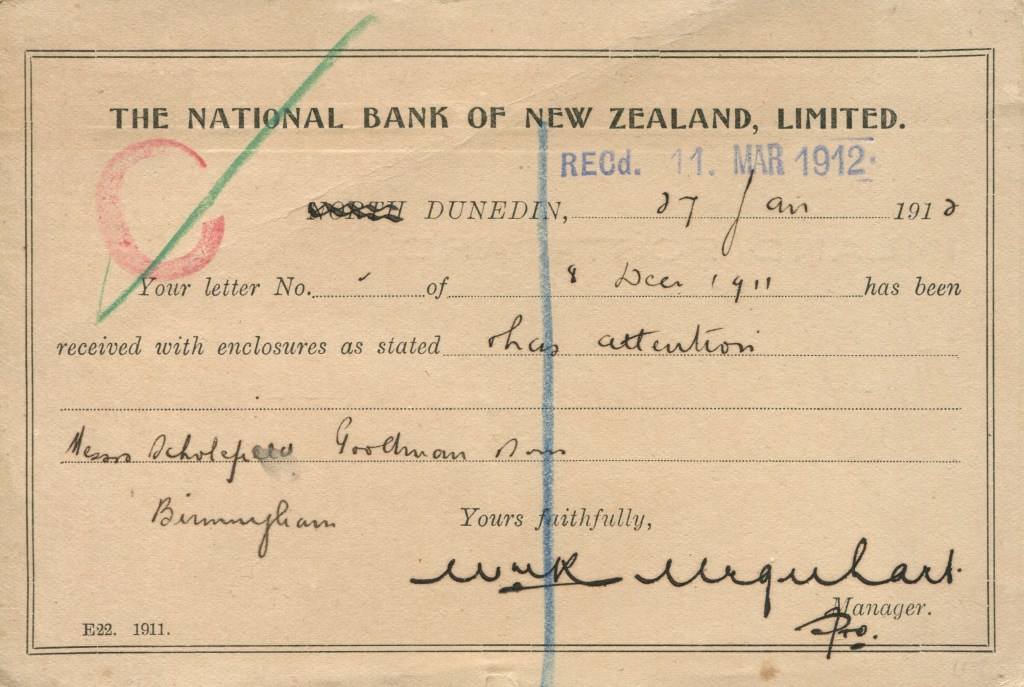 THE NATIONAL BANK OF NEW ZEALAND, LIMITED.
C
RECd. 11. MAR 1912.
NORTH DUNEDIN, 27 Jan 1912
Your letter No. of 8 Decr 1911 has been
received with enclosures as stated & has attention
Messrs Scholefield Goodman & Sons
Birmingham
Yours faithfully,
Wm R Urquhart.
Manager.
Pro.
E22. 1911.